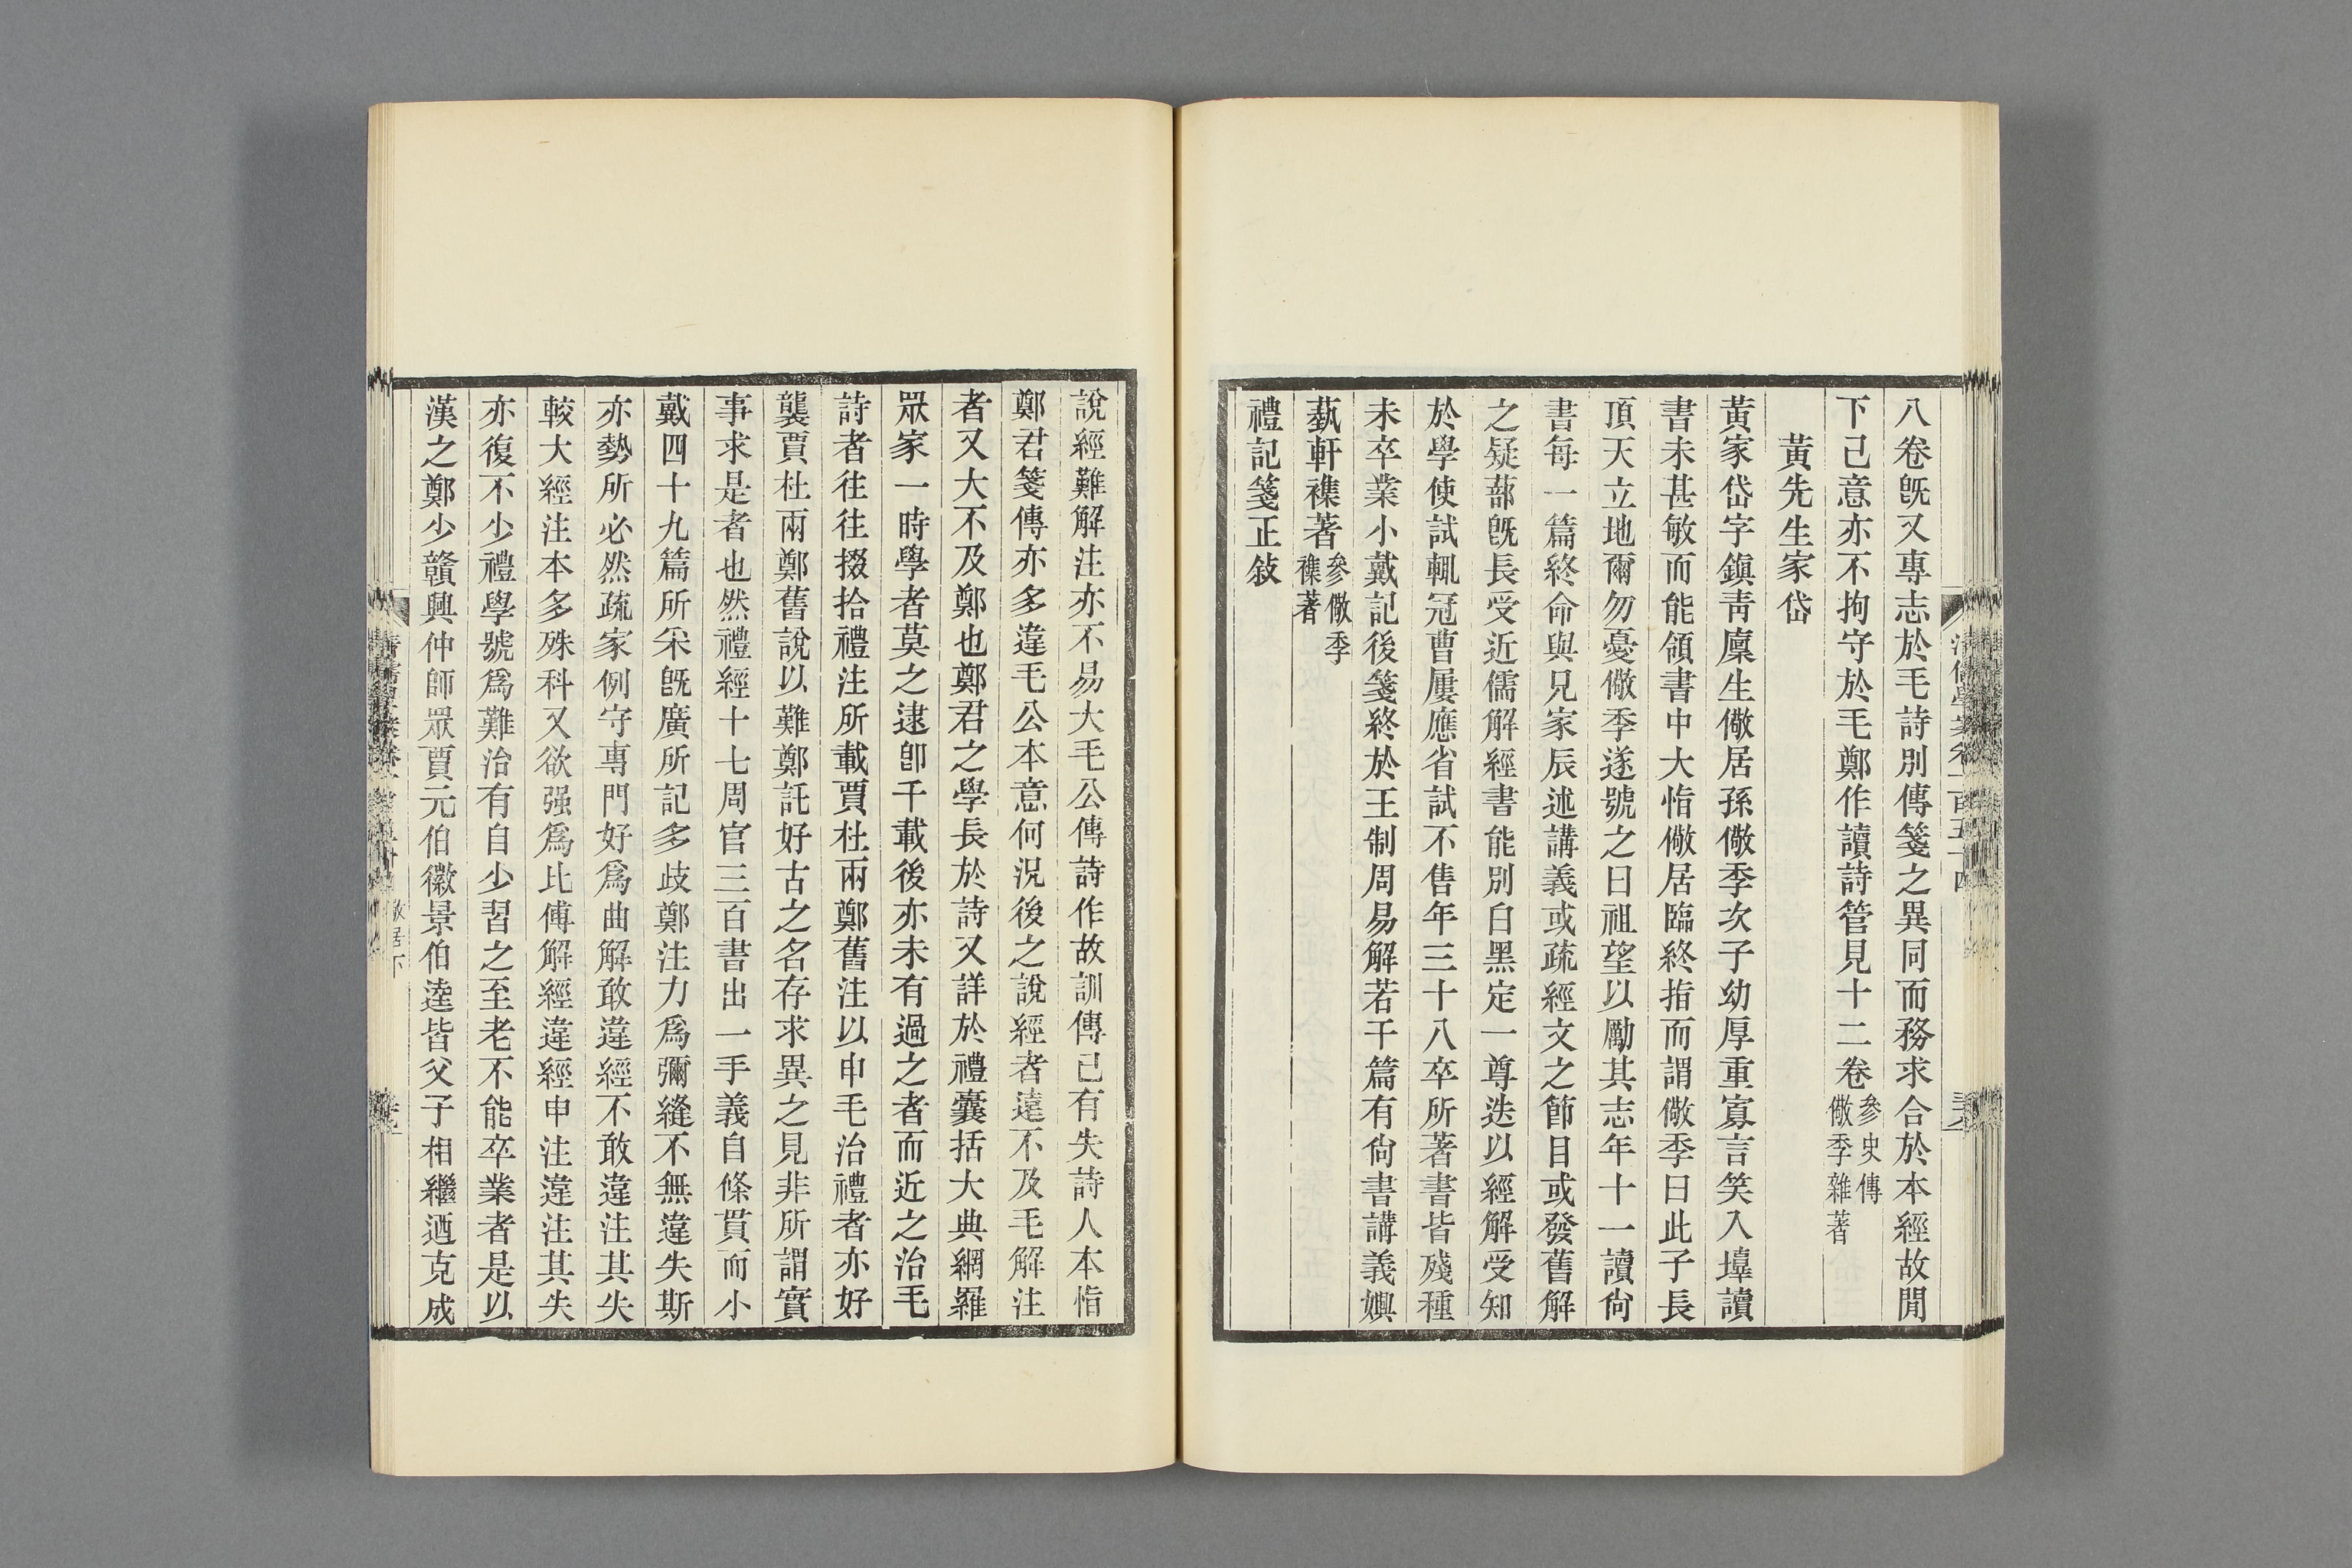 八卷旣又專志於毛詩別傳箋之異同而務求合於本經故閒
下己意亦不拘守於毛鄭作讀詩管見十二卷參史傳儆季雜著
黃先生家岱
黃家岱字鎭靑廩生儆居孫儆季次子幼厚重寡言笑入塾讀
書未甚敏而能領書中大恉儆居臨終指而謂儆季曰此子長
頂天立地爾勿憂儆季遂號之曰祖望以勵其志年十一讀尙
書每一篇終命與兄家辰述講義或疏經文之節目或發舊解
之疑蔀旣長受近儒解經書能別白黑定一尊迭以經解受知
於學使試輒冠曹屢應省試不售年三十八卒所著書皆殘種
未卒業小戴記後箋終於王制周易解若干篇有尙書講義嬹
蓺軒襍著參儆季襍著
禮記箋正敍
說經難解注亦不易大毛公傳詩作故訓傳已有失詩人本恉
鄭君箋傳亦多違毛公本意何況後之說經者遠不及毛解注
者又大不及鄭也鄭君之學長於詩又詳於禮囊括大典網羅
眾家一時學者莫之逮卽千載後亦未有過之者而近之治毛
詩者往往掇拾禮注所載賈杜兩鄭舊注以申毛治禮者亦好
襲賈杜兩鄭舊說以難鄭託好古之名存求異之見非所謂實
事求是者也然禮經十七周官三百書出一手義自條貫而小
戴四十九篇所采旣廣所記多歧鄭注力爲彌縫不無違失斯
亦勢所必然疏家例守專門好爲曲解敢違經不敢違注其失
較大經注本多殊科又欲强爲比傅解經違經申注違注其失
亦復不少禮學號爲難治有自少習之至老不能卒業者是以
漢之鄭少贛興仲師眾賈元伯徽景伯逵皆父子相繼迺克成